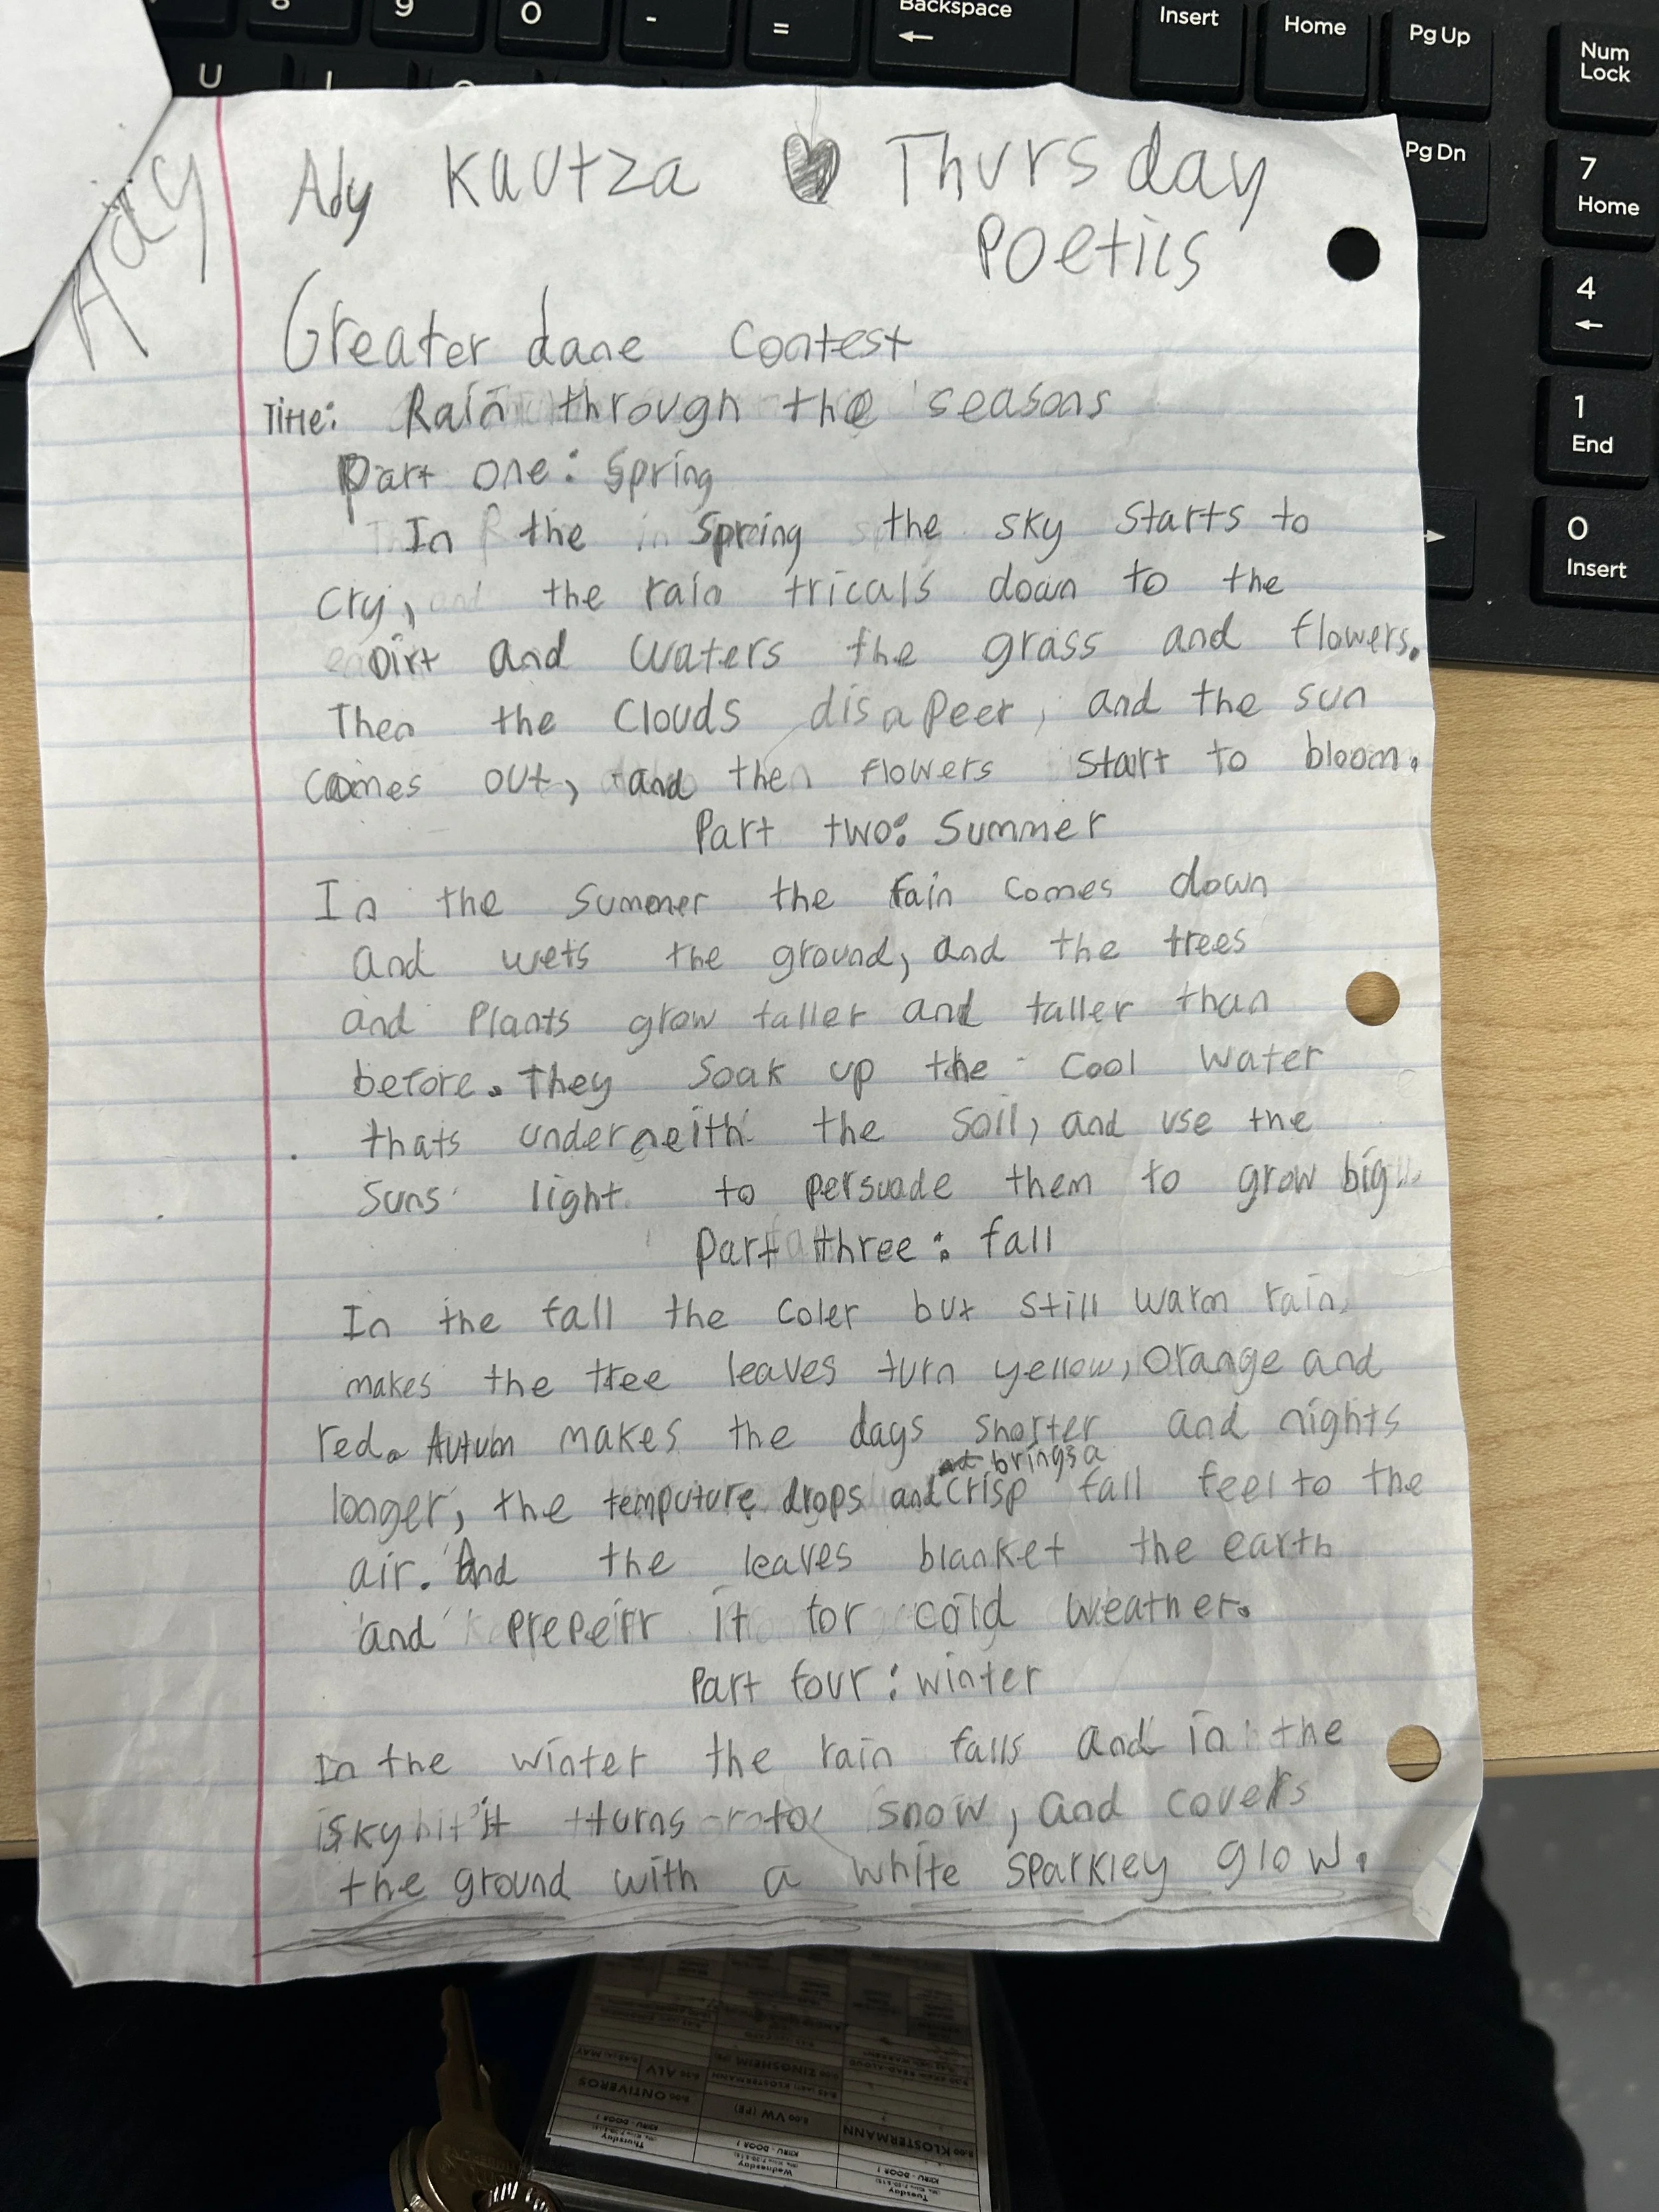 8 9 0 - = Backspace Insert Home Pg Up Num Lock
U Pg Dn 7 Home
4
1 End
0 Insert
Ady
Ady Kautza Thursday
Poetics
Greater dane Contest
Title: Rain through the seasons
Part one: Spring
In the Spring the sky starts to
cry, the rain tricals down to the
Dirt and waters the grass and flowers.
Then the Clouds disapeer, and the sun
comes out, and then flowers start to bloom.
Part two: Summer
In the Summer the rain comes down
and wets the ground, and the trees
and Plants grow taller and taller than
before. They soak up the cool water
thats underneith the soil, and use the
suns light to persuade them to grow big
Part three: fall
In the fall the coler but still warm rain
makes the tree leaves turn yellow, orange and
red. Autum makes the days shorter and nights
brings a
longer, the temputure drops and crisp fall feel to the
air. And the leaves blanket the earth
and prepeirr it for cold weather.
Part four: winter
In the winter the rain falls and in the
sky it turns to snow, and covers
the ground with a white sparkley glow.
8:00 ONTIVEROS
8:00 VW (PE)
8:00 KLOSTERMANN
KYRU - DOOR 1
KYRU - DOOR 1
KYRU - DOOR 1
Thursday
Wednesday
Tuesday